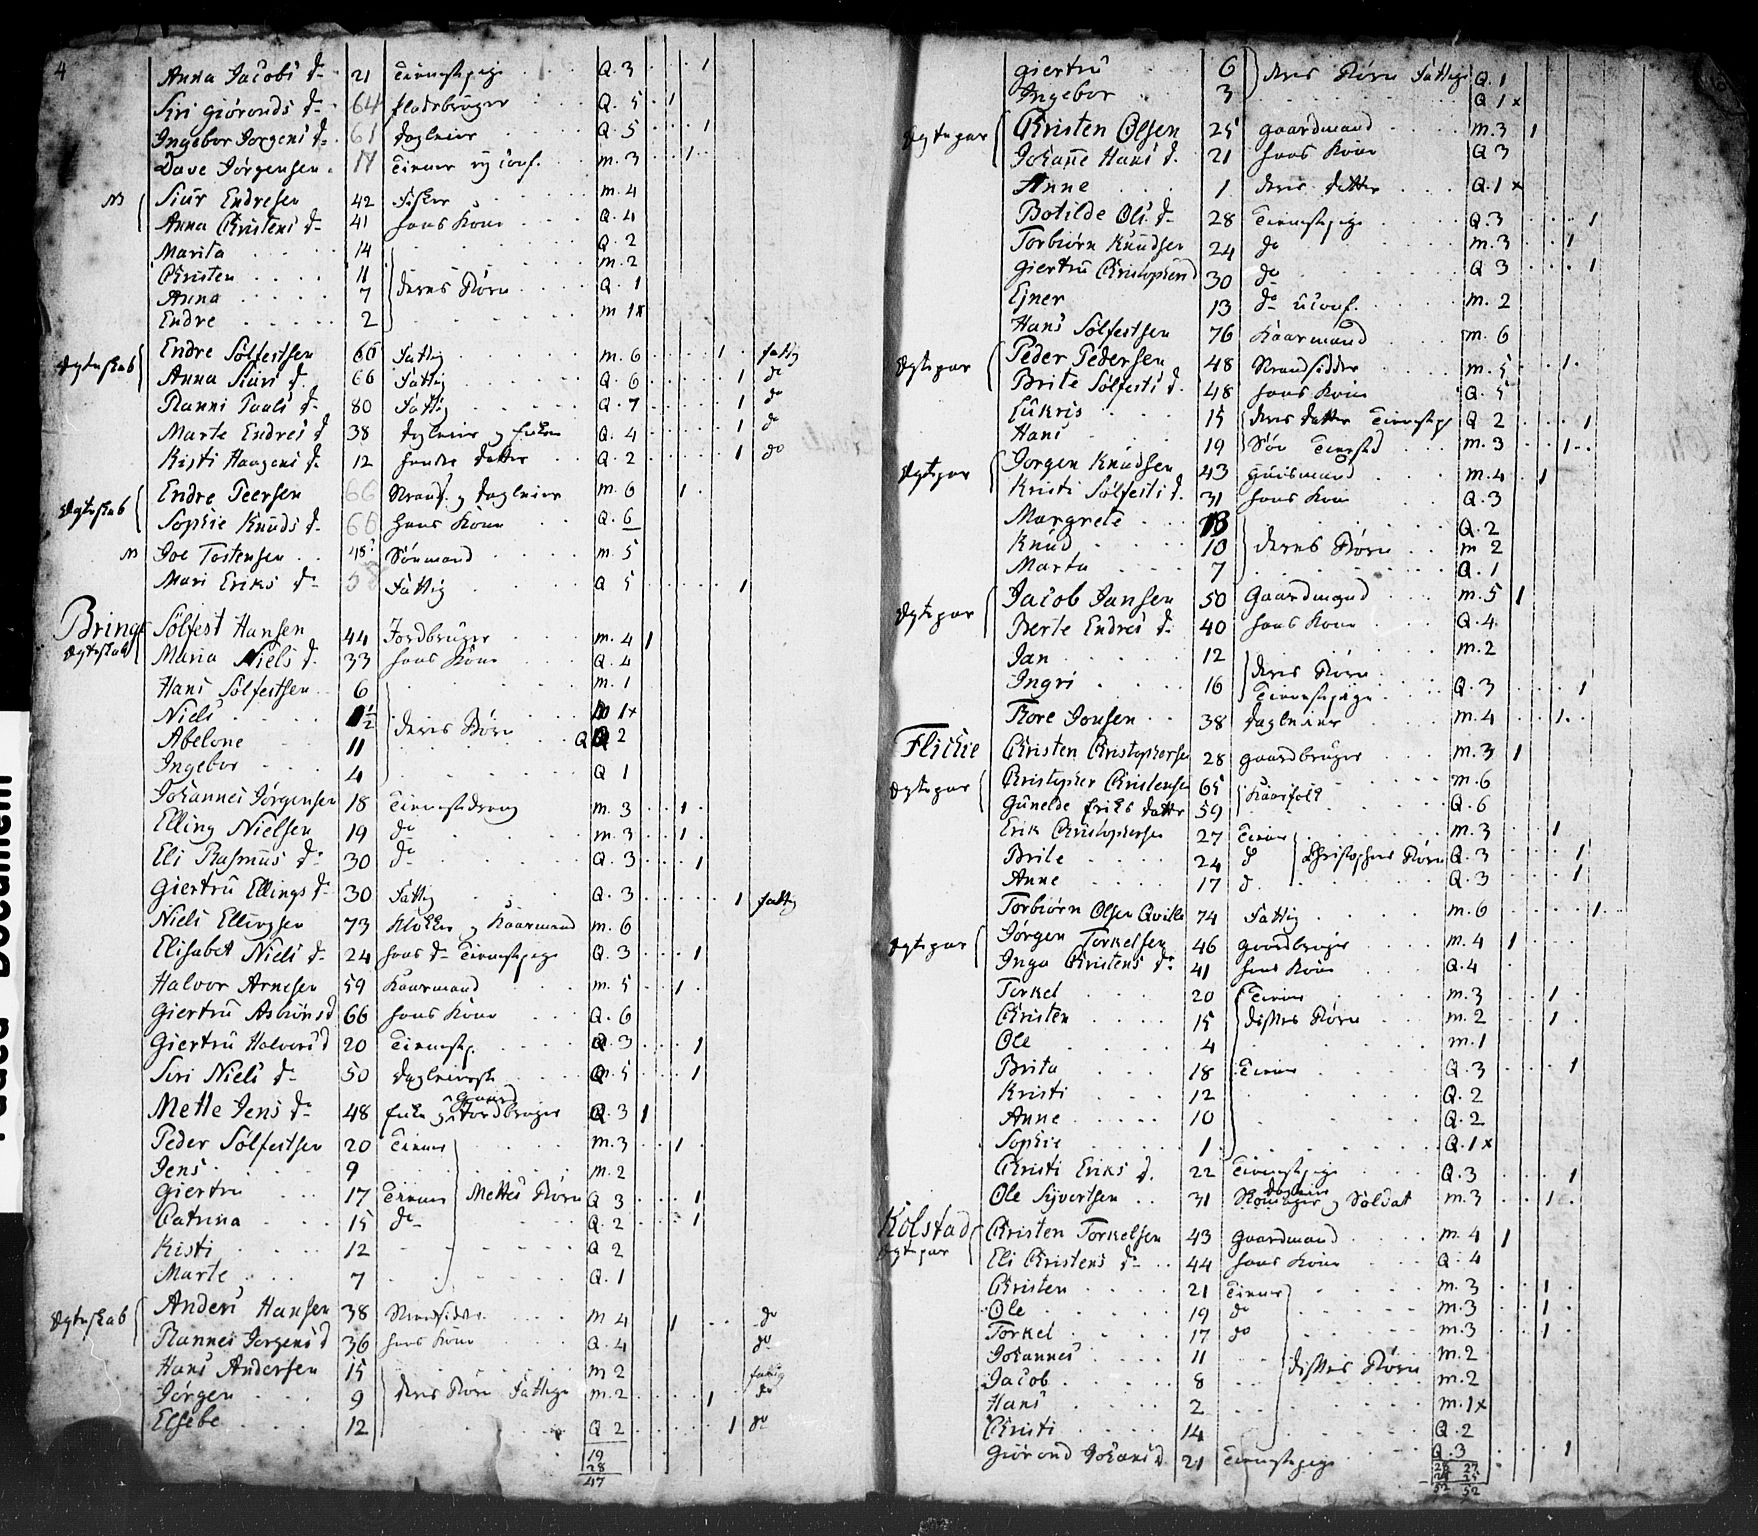 4
Anna Jacobs d. 21 Tienestpige Q. 3 1
Siri Giöronds d. 64 Q. 5 1
Ingebor Jorgens d. 61 dagleier Q. 5 1
Dave Jörgensen 17 Tiener m. 3 1
M Siur Endresen 42 Fisker m. 4
Anna Christens d. 41 hans Kone Q. 4
Marita 14 Q. 2
Christen 11 m. 2
Anna 7 deres Börn Q. 1
Endre 2 m 1x
Egteskab Endre Sölfestsen 66 Fattig m. 6 1 fattig
Anna Siurs d. 66 Fattig Q. 6 1 do
Ranni Pauls d. 80 Fattig Q. 7 1 do
Marte Endres d 38 dagleier og Enke Q. 4 1 do
Kisti Haagens d. 12 hendes datter Q. 2 1 do
Egteskab Endre Peersen 66 Strands. og dagleier m. 6 1
Sophie Knuds d. 66 hans Kone Q. 6
M Joe Tostensen 48 Sönmand m. 5
Mari Eriks d. 58 Fattig Q 5 1
Bringe Sölfest Hansen 44 Jordbruger m. 4 1
Egteskab Maria Niels d. 33 hans Kone Q. 4
Hans Sölfestsen 6 m. 1
Niels 1/2 deres Börn M 1x
Abelone 11 Q 2
Ingebor 4 Q 1
Johannes Jörgensen 18 Tienestedreng m. 3 1
Elling Nielsen 19 do m. 3 1
Eli Rasmus d. 30 do Q. 3 1
Giertru Ellings d. 30 Fattig Q. 3 1 fattig
Niels Ellingsen 73 Klokker og Kaarmand m. 6
Elisabet Niels d. 24 hans d. Tienestpige Q. 3 1
Halvor Arnesen 59 Kaarmand m. 5 1
Giertru Asbiörns d 66 hans Kone Q. 6
Giertru Halvors d 20 Tienestp. Q. 3 1
Siri Niels d. 50 dagleiersk Q. 5 1
Mette Jens d. 48 Enke og Gaard Jordbruger Q. 3 1
Peder Sölfestsen 20 Tiener m. 3 1
Jens 9 m. 2
Giertru 17 Tiener Mettes Börn Q 3 1
Catrina 15 do Q. 2 1
Kisti 12 Q 2
Marte 7 Q. 1
Egteskab Anders Hansen 38 Strandsidder m 4 1 do
Rannes Jorgens d 36 hans Kone Q. 4 do
Hans Andersen 15 m 2 fattig
Jorgen 9 deres Börn Fattige m. 2 1 do
Elsebe 12 Q 2 1 do
19
28
47
Giertru 6 deres Börn Fattige Q. 1
Ingebor 3 Q 1x
Egtepar Christen Olsen 25 gaardmand m. 3 1
Johanne Hans d. 21 hans Kone Q 3
Anne 1 deres datter Q. 1x
Botilde Ols d. 28 Tienestpige Q. 3 1
Torbiörn Knudsen 24 do m. 3 1
Giertru Christophers d 30 do Q 3 1
Ejner 13 do uconf. m. 2
Hans Sölfestsen 76 Kaarmand m. 6
Egtepar Peder Pedersen 48 Strandsidder m. 5 1
Brite Sölfests d. 48 hans Kone Q. 5
Lukris 15 deres datter Tienestp Q 2 1
Hans 19 Sön Tienested m. 3 1
Egtepar Jorgen Knudsen 43 Huusmand m. 4 1
Kristi Sölfests d. 31 hans Kone Q. 3
Margrete 13 Q. 2
Knud 10 deres Börn m 2
Marta 7 Q. 1
Egtepar Jacob Jansen 50 Gaardmand m. 5 1
Berte Endres d. 40 hans Kone Q. 4
Jan 12 deres Börn m. 2
Ingri 16 Tienestpige Q. 3 1
Tore Jonsen 38 dagleier m. 4 1
Flicie Christen Christophersen 28 gaardbruger m. 3 1
Egtepar Christopher Christensen 65 Kaarfolk m. 6
Gunelde Eriks datter 59 Q. 6
Erik Christophersen 27 Tiener m. 3 1
Brite 24 d Christophers Börn Q. 3 1
Anne 17 d Q. 3 1
Torbiörn Olsen Qville 74 Fattig m. 6 1
Egtepar Jörgen Torkelsen 46 gaardbruger m. 4 1
Inga Christens d. 41 hans Kone Q. 4
Torkel 20 Tiener m. 3 1
Christen 15 disses Börn m. 2 1
Ole 4 m. 1
Brita 18 Tiener Q. 3 1
Kristi 12 Q. 2
Anne 10 Q. 2
Sophie 1 Q. 1x
Christi Eriks d. 22 Tienestpige Q. 3 1
Ole Sjvertsen 31 dagleier og Soldat m. 3 1
Kolstad Christen Torkelsen 43 gaardmand m. 4 1
Egtepar Eli Christens d. 44 hans Kone Q. 4
Christen 21 Tiener m. 3 1
Ole 19 do m. 3 1
Torkel 17 do m. 3 1
Johannes 11 disses Börn m. 2
Jacob 8 m. 2
Hans 2 m. 1x
Christi 14 Q. 2
Giörond Johans d. 21 Tienestpige Q. 3 1
52 52